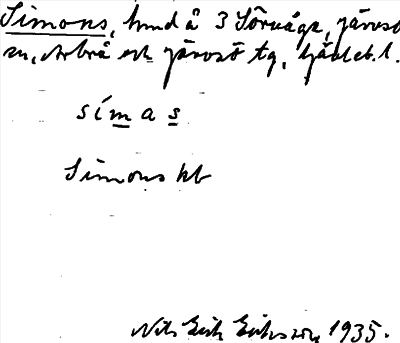 Simons, hmd å 3 Sörvåge, Järvsö
sn, Arbrå och Järvsö tg, Gävleb. l.
símas
Simons kb
Nils Erik Eriksson 1935.